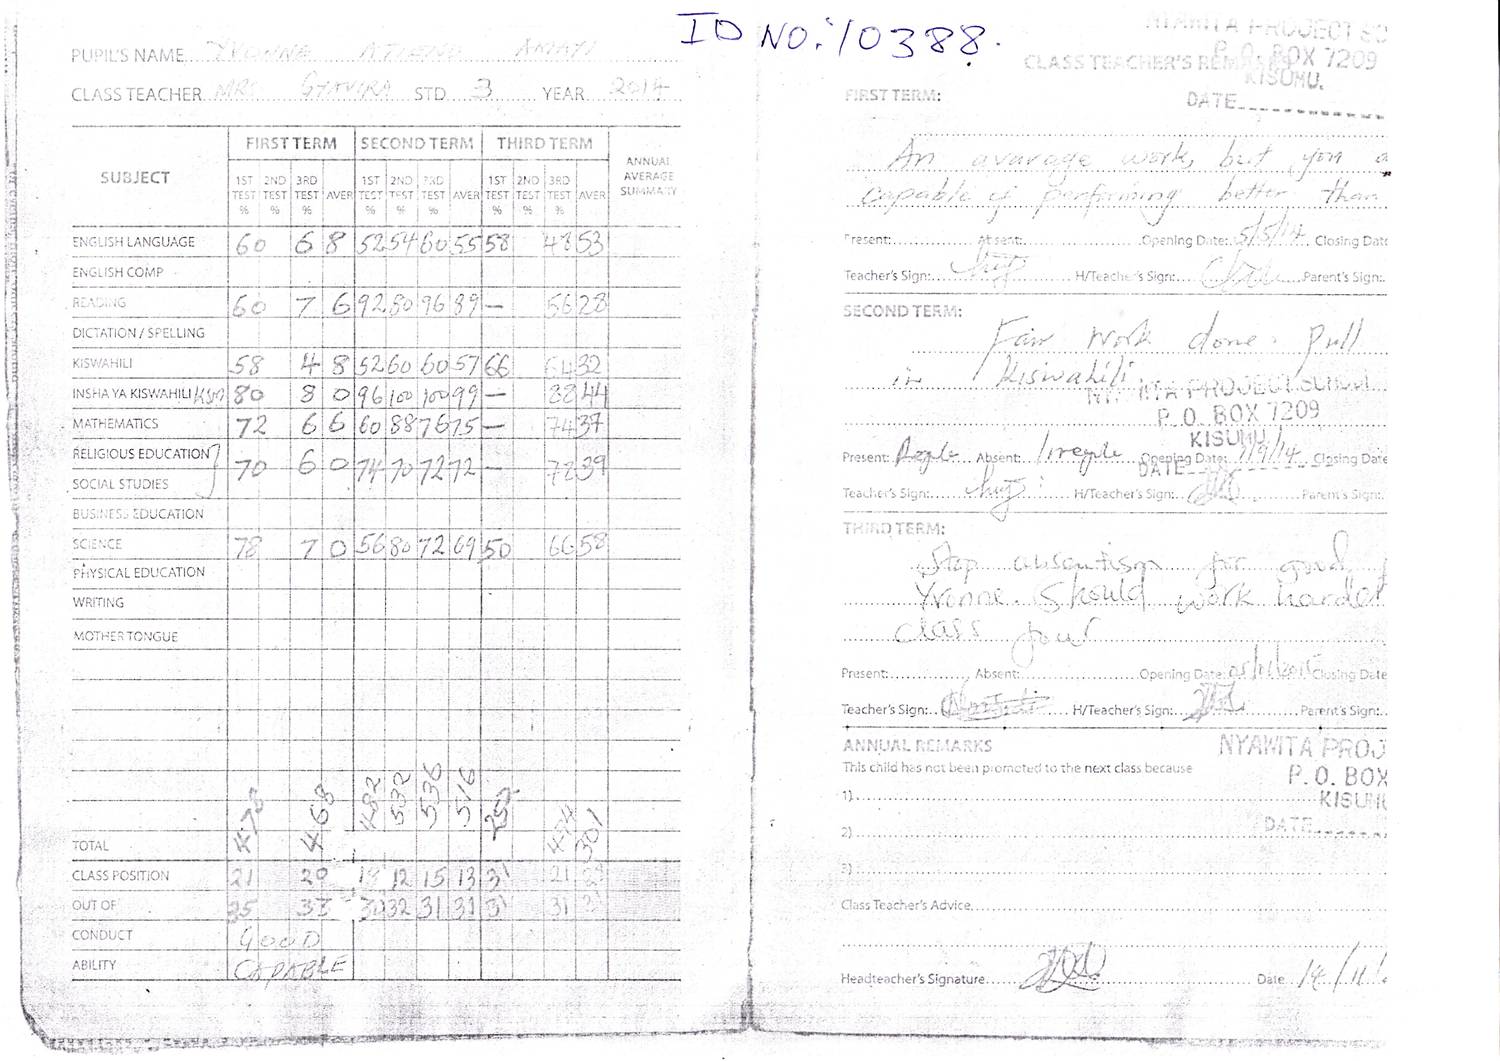 ID NO: 10388.
PUPIL'S NAME YVONNE ATIENO
CLASS TEACHER MRS STD 3 YEAR 2014
SUBJECT FIRST TERM SECOND TERM THIRD TERM ANNUAL AVERAGE SUMMARY
1ST TEST % 2ND TEST % 3RD TEST % AVER 1ST TEST % 2ND TEST % 3RD TEST % AVER 1ST TEST % 2ND TEST % 3RD TEST % AVER
ENGLISH LANGUAGE 60 68 52 54 60 55 58 48 53
ENGLISH COMP
READING 60 76 92 80 96 89 — 56 28
DICTATION / SPELLING
KISWAHILI 58 48 52 60 60 57 66 64 32
INSHA YA KISWAHILI 80 80 96 100 100 99 — 88 44
MATHEMATICS 72 66 60 88 76 75 — 74 37
RELIGIOUS EDUCATION
70 60 74 70 72 72 — 78 39
SOCIAL STUDIES
BUSINESS EDUCATION
SCIENCE 78 70 56 80 72 69 50 66 58
PHYSICAL EDUCATION
WRITING
MOTHER TONGUE
TOTAL 478 468 482 532 536 516 474 301
CLASS POSITION 21 20 12 15 13 31 21
OUT OF 35 33 30 32 31 31 31 31
CONDUCT GOOD
ABILITY CAPABLE
NYAWITA PROJECT SC
P. O. BOX 7209
CLASS TEACHER'S REMARKS
KISUMU.
FIRST TERM:
DATE
An avarage work, but you a
capable of performing better than
Present: Absent: Opening Date: 5/5/14 Closing Date
Teacher's Sign: H/Teacher's Sign: Parent's Sign:
SECOND TERM:
Fair work done. Pull
in Kiswahili
NYAWITA PROJECT SCHOOL
P. O. BOX 7209
KISUMU
Present: Absent: Irregular Opening Date: 1/9/14 Closing Date
DATE
Teacher's Sign: H/Teacher's Sign: Parent's Sign:
THIRD TERM:
Stop absentism for good,
Yvonne. Should work harder
class four
Present: Absent: Opening Date: Closing Date
Teacher's Sign: H/Teacher's Sign: Parent's Sign:
ANNUAL REMARKS
NYAWITA PROJ
This child has not been promoted to the next class because
P. O. BOX
1)
KISUMU
DATE
2)
3)
Class Teacher's Advice
Headteacher's Signature Date 14/11/